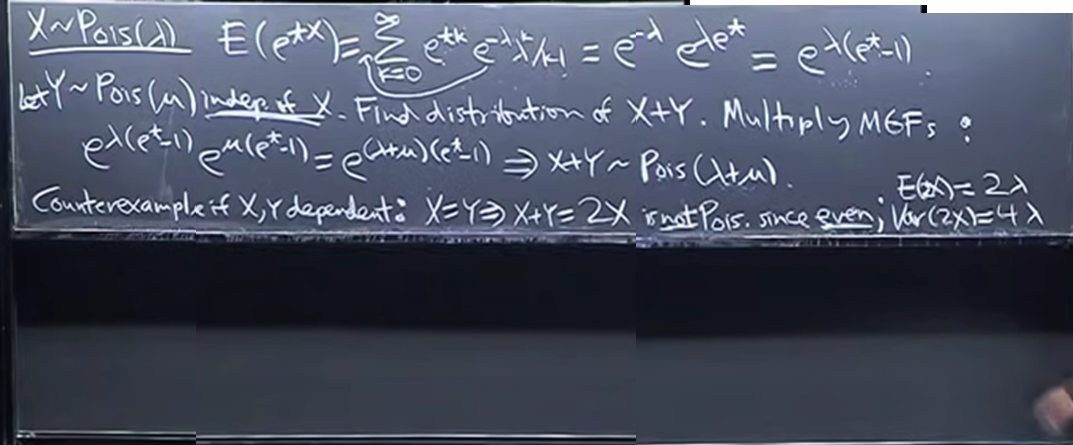 X~Pois(λ) E(e^{tX}) = ∑_{k=0}^{∞} e^{tk} e^{-λ} λ^k/k! = e^{-λ} e^{λe^t} = e^{λ(e^t-1)}.
Let Y~Pois(μ) indep. of X. Find distribution of X+Y. Multiply MGFs:
e^{λ(e^t-1)} e^{μ(e^t-1)} = e^{(λ+μ)(e^t-1)} ⇒ X+Y ~ Pois(λ+μ).
E(2X) = 2λ
Counterexample if X,Y dependent: X=Y ⇒ X+Y = 2X is not Pois. since even; Var(2X)=4λ